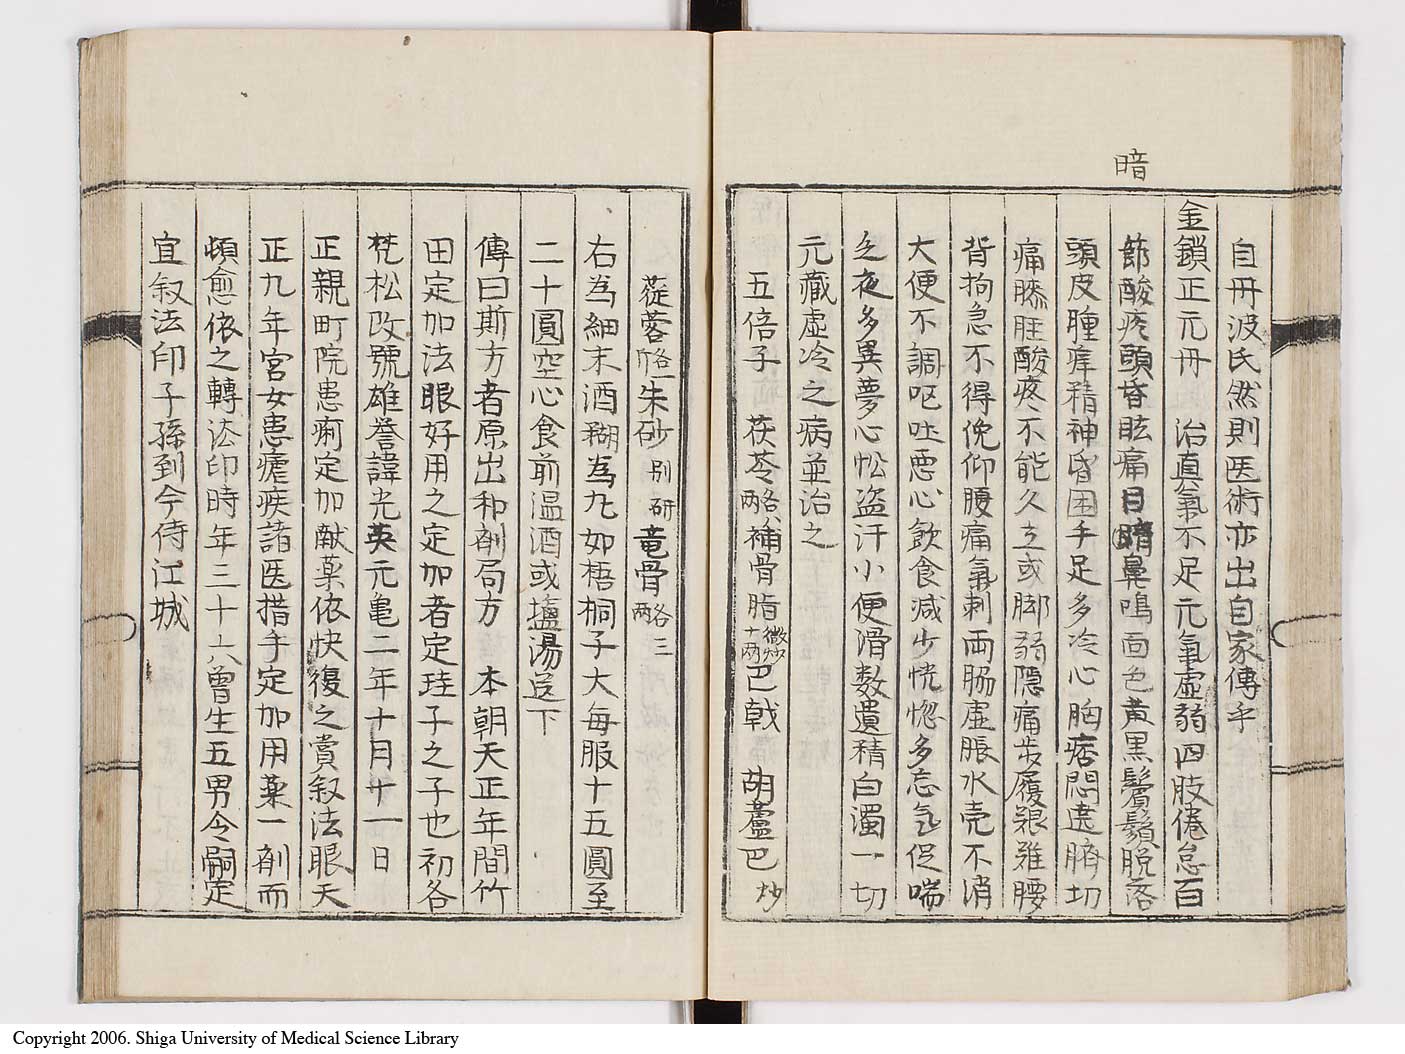 暗
自丹波氏然則医術亦出自家傳乎
金鎖正元丹　治真氣不足元氣虚弱四肢倦怠百
節酸疼頭昏眩痛目暗鼻鳴面色黄黒鬢鬚脱落
頭皮腫痒精神昏困手足多冷心胸痞悶遶臍切
痛膝脛酸疼不能久立或脚弱隠痛歩履艱難腰
背拘急不得俛仰腰痛氣刺両脇虚脹水穀不消
大便不調呕吐悪心飲食減少恍惚多忘氣促喘
乏夜多異夢心忪盗汗小便滑数遺精白濁一切
元蔵虚冷之病並治之
五倍子　茯苓略八両補骨脂微炒十両巴戟　胡蘆巴炒
蓯蓉略一朱砂別研竜骨略三両
右為細末酒糊為丸如梧桐子大毎服十五圓至
二十圓空心食前温酒或塩湯送下
傳曰斯方者原出和剤局方　本朝天正年間竹
田定加法眼好用之定加者定珪子之子也初各
梵松改號雄誉諱光英元亀二年十月廿一日
正親町院患痢定加献薬依快復之賞叙法眼天
正九年宮女患瘧疾諸医措手定加用薬一剤而
頓愈依之轉法印時年三十六曽生五男令嗣定
宜叙法印子孫到今侍江城
Copyright 2006. Shiga University of Medical Science Library